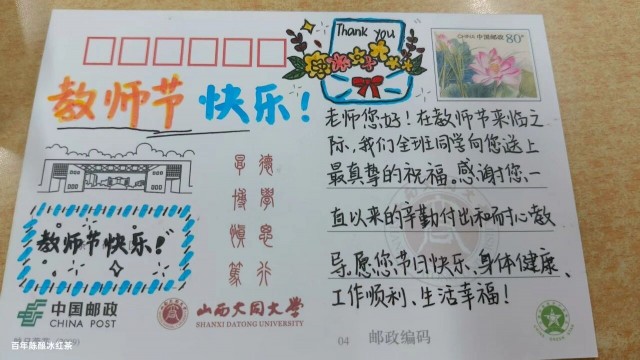 Thank you
中国邮政 80分
CHINA
教师节 快乐！
老师您好！在教师节来临之
际，我们全班同学向您送上
最真挚的祝福。感谢您一
直以来的辛勤付出和耐心教
导。愿您节日快乐、身体健康、
工作顺利、生活幸福！
厚德
博學
慎思
篤行
教师节快乐！
中国邮政
CHINA POST
山西大同大学
SHANXI DATONG UNIVERSITY
04 邮政编码
百年陈酿冰红茶